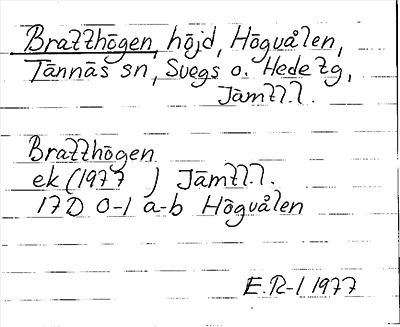 Bratthögen, höjd, Högvålen,
Tännäs sn, Svegs o. Hede tg,
Jämtl.l.
Bratthögen
ek (1977 ) Jämtl.l.
17D 0-1 a-b Högvålen
E.R-l 1977